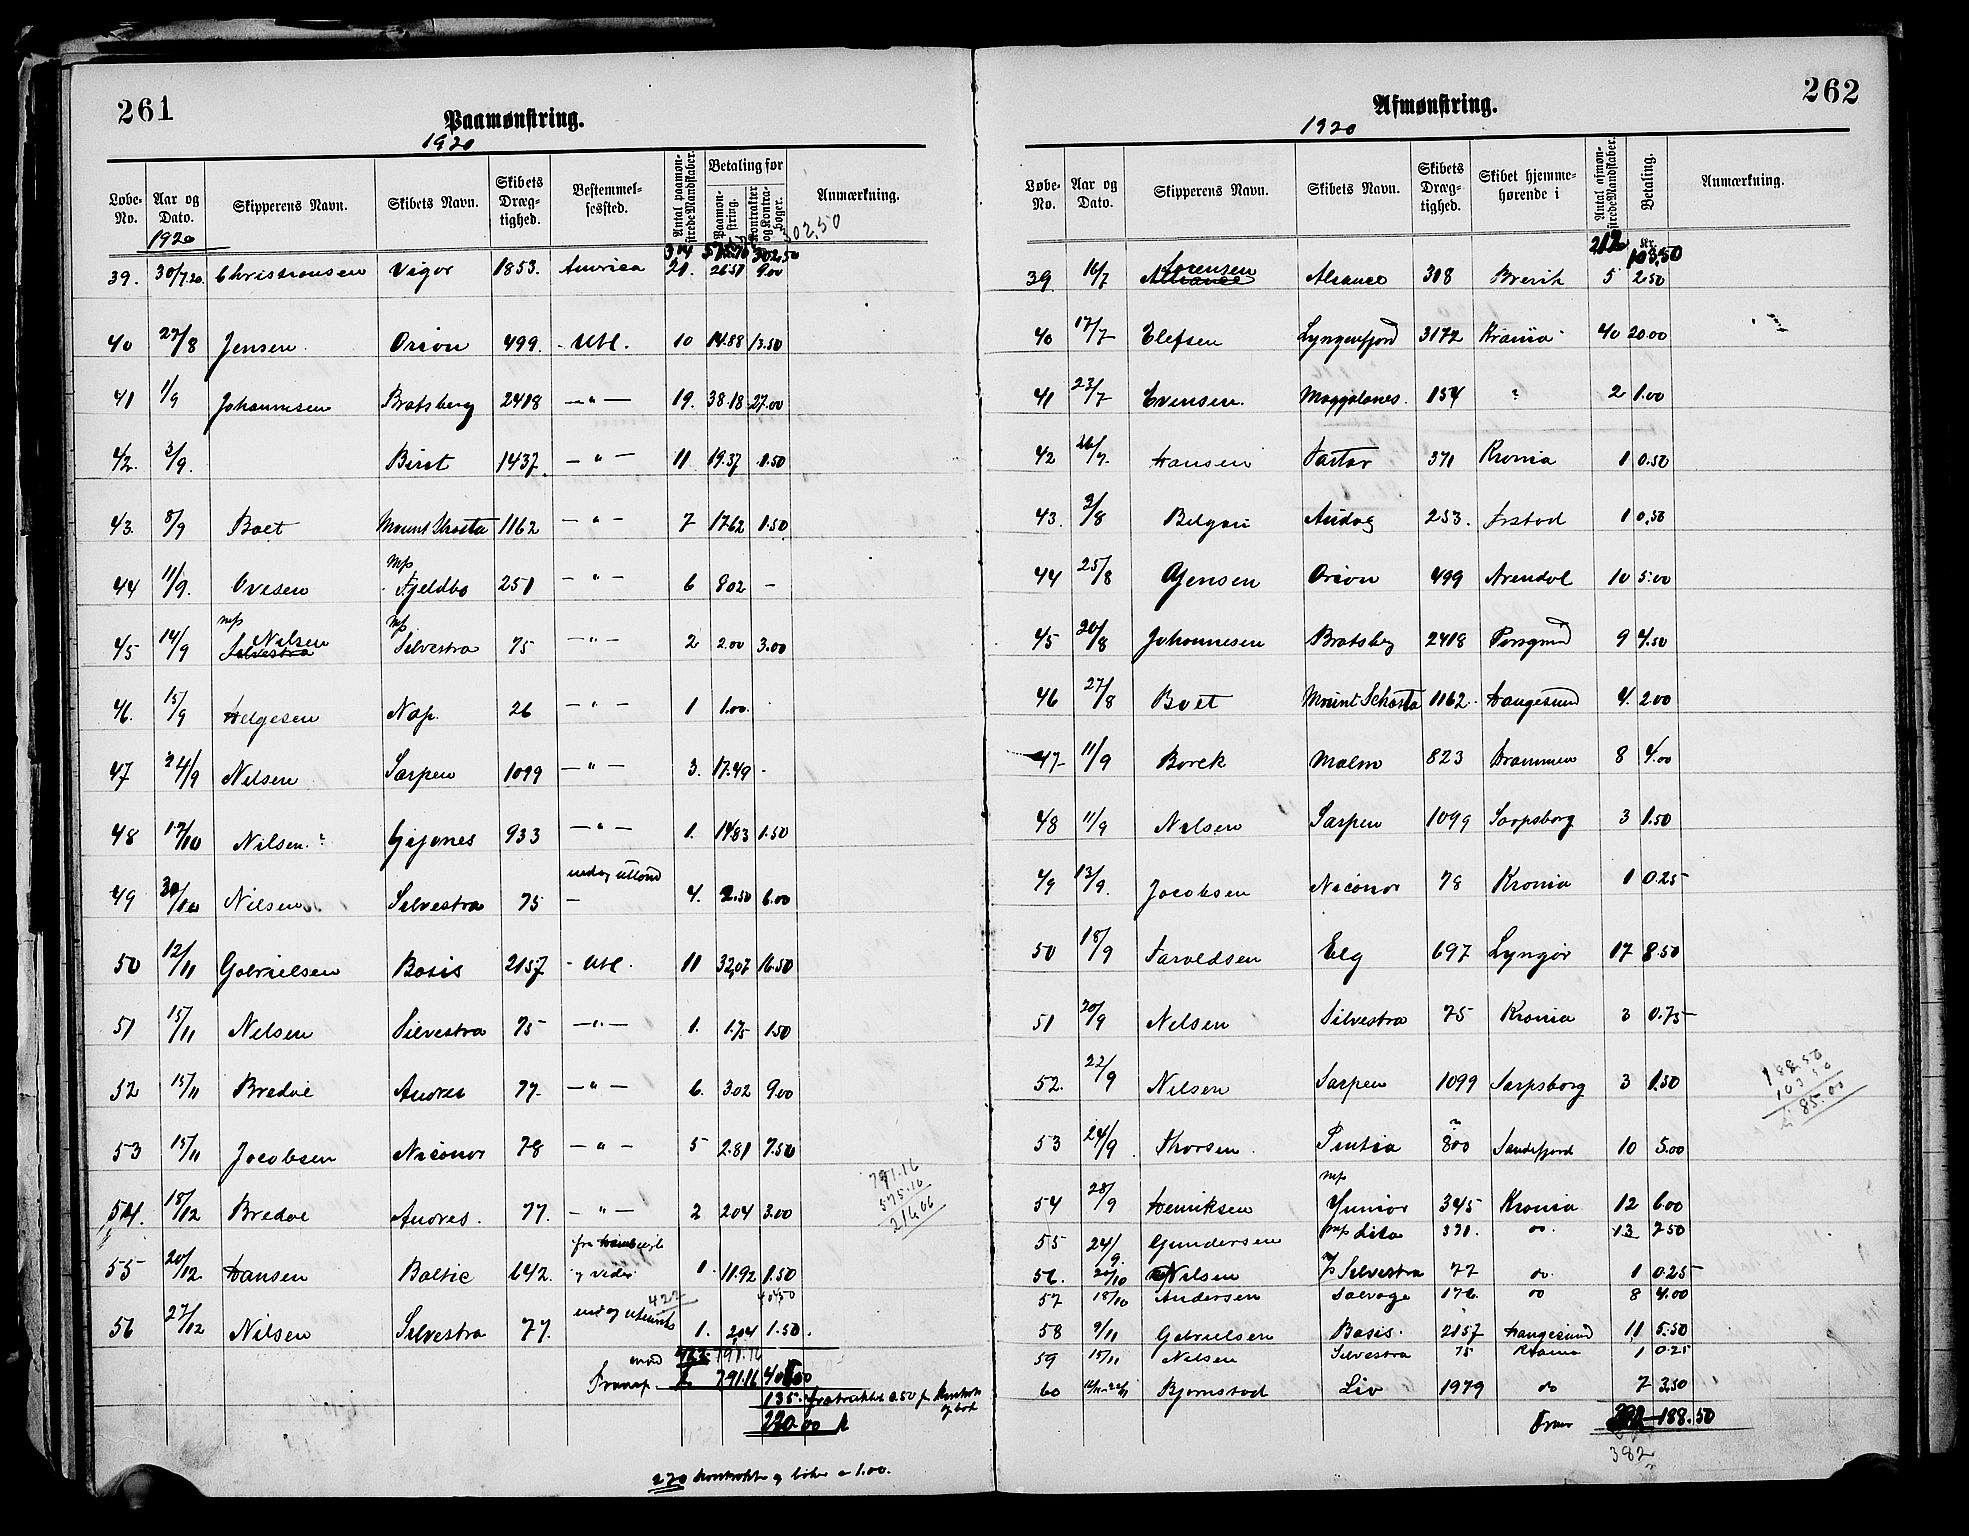 261
Paamønstring.
1920
Løbe-No. Aar og Dato. Skipperens Navn. Skibets Navn. Skibets Dræg-tighed. Bestemmel-sessted. Antal paamøn-strede Mandskaber. Betaling for Paamøn-string. Kontrakter og Kontra-bøger. Anmærkning.
1920 302,50
314 302,50
39. 30/7.20. Christiansen Vigor 1853. America 21. 26.51 9.00
40 27/8 Jensen Orion 499. Utl. 10 14.88 13.50
41 1/9 Johannesen Bratsberg 2418 — " — 19. 38.18 27.00
42. 3/9. Birst 1437. — " — 11 19.37 1.50
43. 8/9 Boet Mount Shasta 1162 — " — 7 17.62 1.50
44 11/9. Ovesen mp Fjeldbo 251 — " — 6 8.02 —
45 14/9 mp Nilsen Silvestra mp Silvestra 75 — " — 2 2.00 3.00
46. 15/9 Helgesen Nap. 26 — " — 1 1.00.
47 24/9 Nilsen Sarpen 1099 — " — 3. 17.49 -
48 12/10 Nilsen ? Gijones 933 — " — 1. 14.83 1.50
49 30/10 Nilsen Silvestra 75 ind og utland — 4. 2.50 6.00
50 12/11 Gabrielsen Basis 2157 Utl. 11 32,07 16.50
51 15/11 Nilsen Silvestra 75 — " — 1. 1.75 1.50
52 15/11 Bredal Andres 77. — " — 6. 3.02 9.00
53 15/11 Jacobsen Niconor 78 — " — 5 2.81 7.50
791.16
575.16
216.00
54. 18/12 Bredal Andres. 77. — " — 2 2.04 3.00
55 20/12 Hansen Baltic 642. fra og vider 1. 11.92 1.50
422 404.50
56 27/12 Nilsen Silvestra 77. ind og utenriks 1. 2.04 1.50.
422 791.16
Transp. 791.16
135. fratrukket 0.50 pr kontrakt og bok
270.00
270 kontrakt og bøker a 1.00.
262
Afmønstring.
1920
Løbe-No. Aar og Dato. Skipperens Navn. Skibets Navn. Skibets Dræg-tighed. Skibet hjemme-hørende i Antal afmøn-strede Mandskaber. Betaling. Anmærkning.
212 Kr. 103,50
39 16/7 Sorensen Aliance 318 Brevik 5 2.50
40 17/7 Elefsen Lyngenfjord 3172 Krania 40 20.00
41 23/7 Evensen. Maggalones. 154 " 2 1.00
42 26/7. Hansen Tartar 371 Kronia 1 0.50
43. 3/8 Andag 253. 1 0,50
44 25/8 O Jensen Orion 499 Arendal 10 5.00
45 20/8 Johannesen Bratsberg 2418 Porsgrund 9 4.50
46 27/8 Boet Mount Schasta 1162. Haugesund 4. 2.00
47- 11/9 Borck Malm 823 Drammen 8 4.00
48 11/9 Nilsen Sarpen 1099 Sarpsborg 3 1.50
49 13/9. Jacobsen Niconor 78 Kronia 1 0.25
50 18/9 Taraldsen Elg 697 Lyngør 17 8.50
51 20/9 Nilsen Silvestra 75 Kronia 3 0.75
52. 22/9 Nilsen Sarpen 1099 Sarpsborg 3 1.50
188.50
103 50
85.00
53 24/9 Thorsen 800 Sandefjord 10 5.00
54 28/9 Henriksen mp Junior 345 Kronia 12 6.00
55 24/9. Gundersen mp Lita 371. do. 13 7.50
56. Nilsen mp Silvestra 77 do. 1 0.25
57 18/10 Andersen Salvage 176. do 8 4.00
58 9/11 Gabrielsen Basis. 2157 Haugesund 11 5.50
59 15/11 Nilsen Silvestra 75 Krania 1 0.25
60 Bjørnstad Liv 1979 do 7 3.50
188.50
382